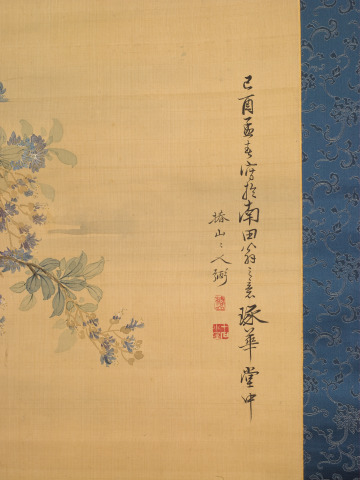 己酉孟春寫於南田翁之意琢華堂中
椿山々人弼